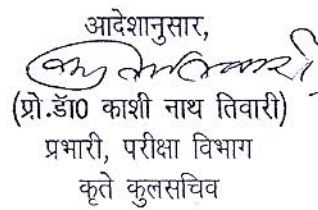 आदेशानुसार,
(प्रो.डॅा0 काशी नाथ तिवारी)
प्रभारी, परीक्षा विभाग
कृते कुलसचिव